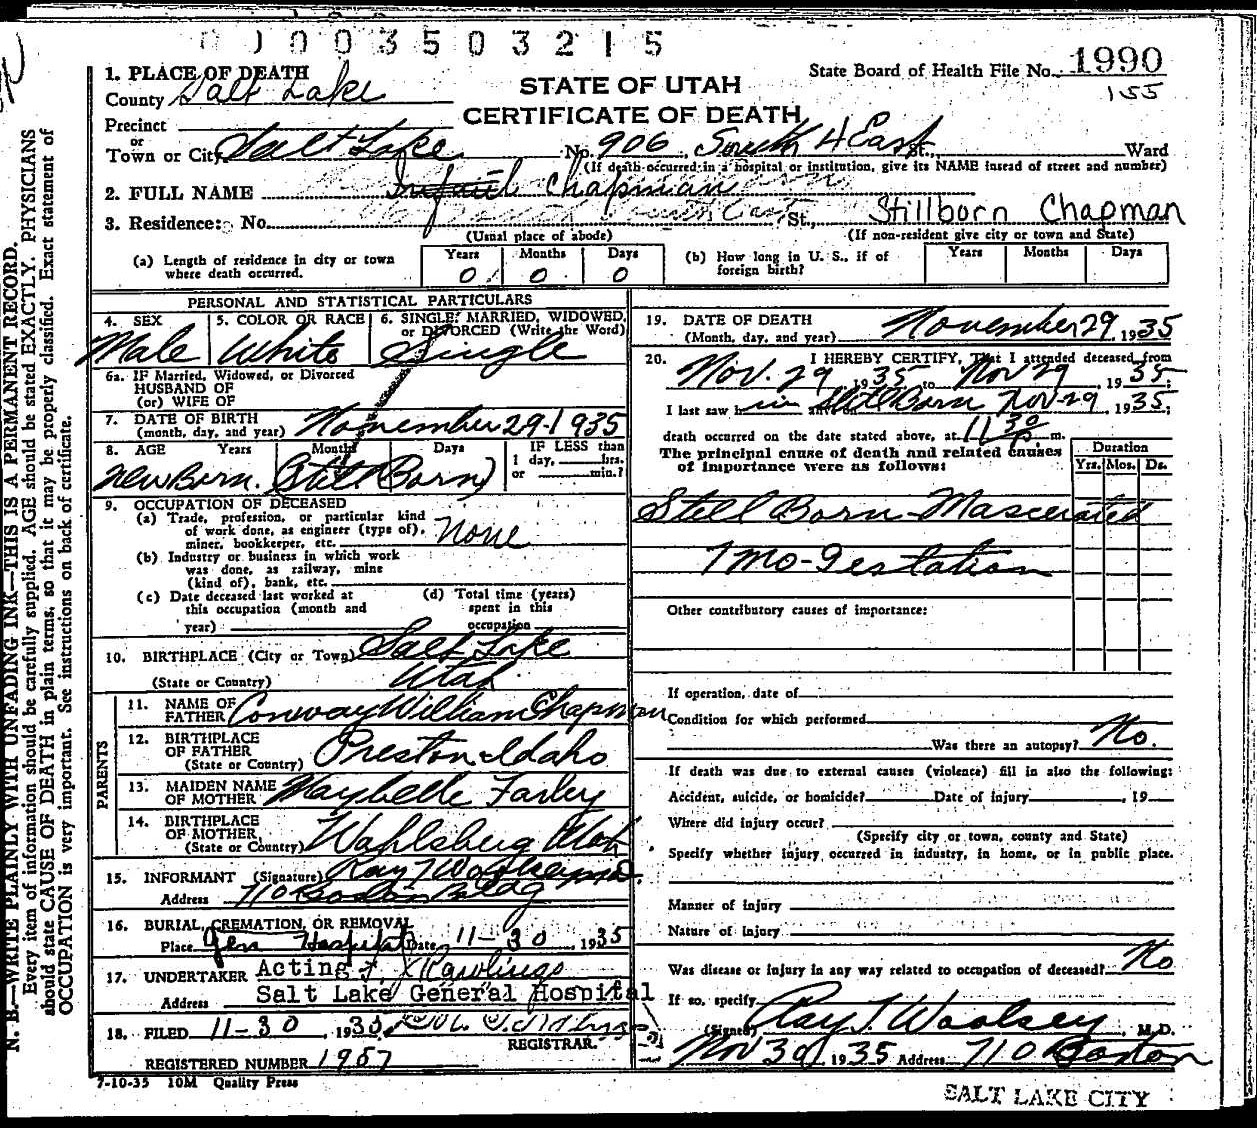 0 0 0 3 5 0 3 2 1 5
1. PLACE OF DEATH
County Salt Lake
STATE OF UTAH
CERTIFICATE OF DEATH
State Board of Health File No. 1990
155
Precinct
or
Town or City Salt Lake No. 906 South 4 East St., Ward
(If death occurred in a hospital or institution, give its NAME instead of street and number)
2. FULL NAME Infant Chapman
3. Residence: No. St., Stillborn Chapman
(Usual place of abode) (If non-resident give city or town and State)
(a) Length of residence in city or town where death occurred. Years 0 Months 0 Days 0
(b) How long in U. S., if of foreign birth? Years Months Days
PERSONAL AND STATISTICAL PARTICULARS
4. SEX Male
5. COLOR OR RACE White
6. SINGLE, MARRIED, WIDOWED, or DIVORCED (Write the Word) Single
6a. IF Married, Widowed, or Divorced
HUSBAND OF
(or) WIFE OF
7. DATE OF BIRTH (month, day, and year) November 29-1935
8. AGE Years Months Days IF LESS than
1 day, hrs.
or min.?
New Born. (Still Born)
9. OCCUPATION OF DECEASED
(a) Trade, profession, or particular kind of work done, as engineer (type of), miner, bookkeeper, etc. None
(b) Industry or business in which work was done, as railway, mine (kind of), bank, etc.
(c) Date deceased last worked at this occupation (month and year)
(d) Total time (years) spent in this occupation
10. BIRTHPLACE (City or Town) Salt Lake
(State or Country) Utah
PARENTS
11. NAME OF FATHER Conway William Chapman
12. BIRTHPLACE OF FATHER (State or Country) Preston Idaho
13. MAIDEN NAME OF MOTHER Maybelle Farley
14. BIRTHPLACE OF MOTHER (State or Country) Wahlsberg Utah
15. INFORMANT (Signature) Ray T Woolsey M.D.
Address 710 Boston Bldg
16. BURIAL, CREMATION, OR REMOVAL
Place Gen Hospital Date 11-30, 1935
17. UNDERTAKER Acting Rawlings
Address Salt Lake General Hospital
18. FILED 11-30, 1935
REGISTRAR.
REGISTERED NUMBER 1987
7-10-35 10M Quality Press
19. DATE OF DEATH (Month, day, and year) November 29, 1935
20. I HEREBY CERTIFY, That I attended deceased from
Nov. 29, 1935 to Nov 29, 1935;
I last saw him Still Born Nov-29, 1935;
death occurred on the date stated above, at 11 30 P. m.
The principal cause of death and related causes of importance were as follows:
Duration
Yrs. Mos. Ds.
Still Born-Mascerated
7 mo-Gestation
Other contributory causes of importance:
If operation, date of
Condition for which performed
Was there an autopsy? No.
If death was due to external causes (violence) fill in also the following:
Accident, suicide, or homicide? Date of injury , 19
Where did injury occur?
(Specify city or town, county and State)
Specify whether injury occurred in industry, in home, or in public place.
Manner of injury
Nature of injury
Was disease or injury in any way related to occupation of deceased? No
If so, specify
(Signed) Ray T. Woolsey, M.D.
Nov 30, 1935 Address 710 Boston
SALT LAKE CITY
N. B.—WRITE PLAINLY WITH UNFADING INK—THIS IS A PERMANENT RECORD.
Every item of information should be carefully supplied. AGE should be stated EXACTLY. PHYSICIANS
should state CAUSE OF DEATH in plain terms, so that it may be properly classified. Exact statement of
OCCUPATION is very important. See instructions on back of certificate.